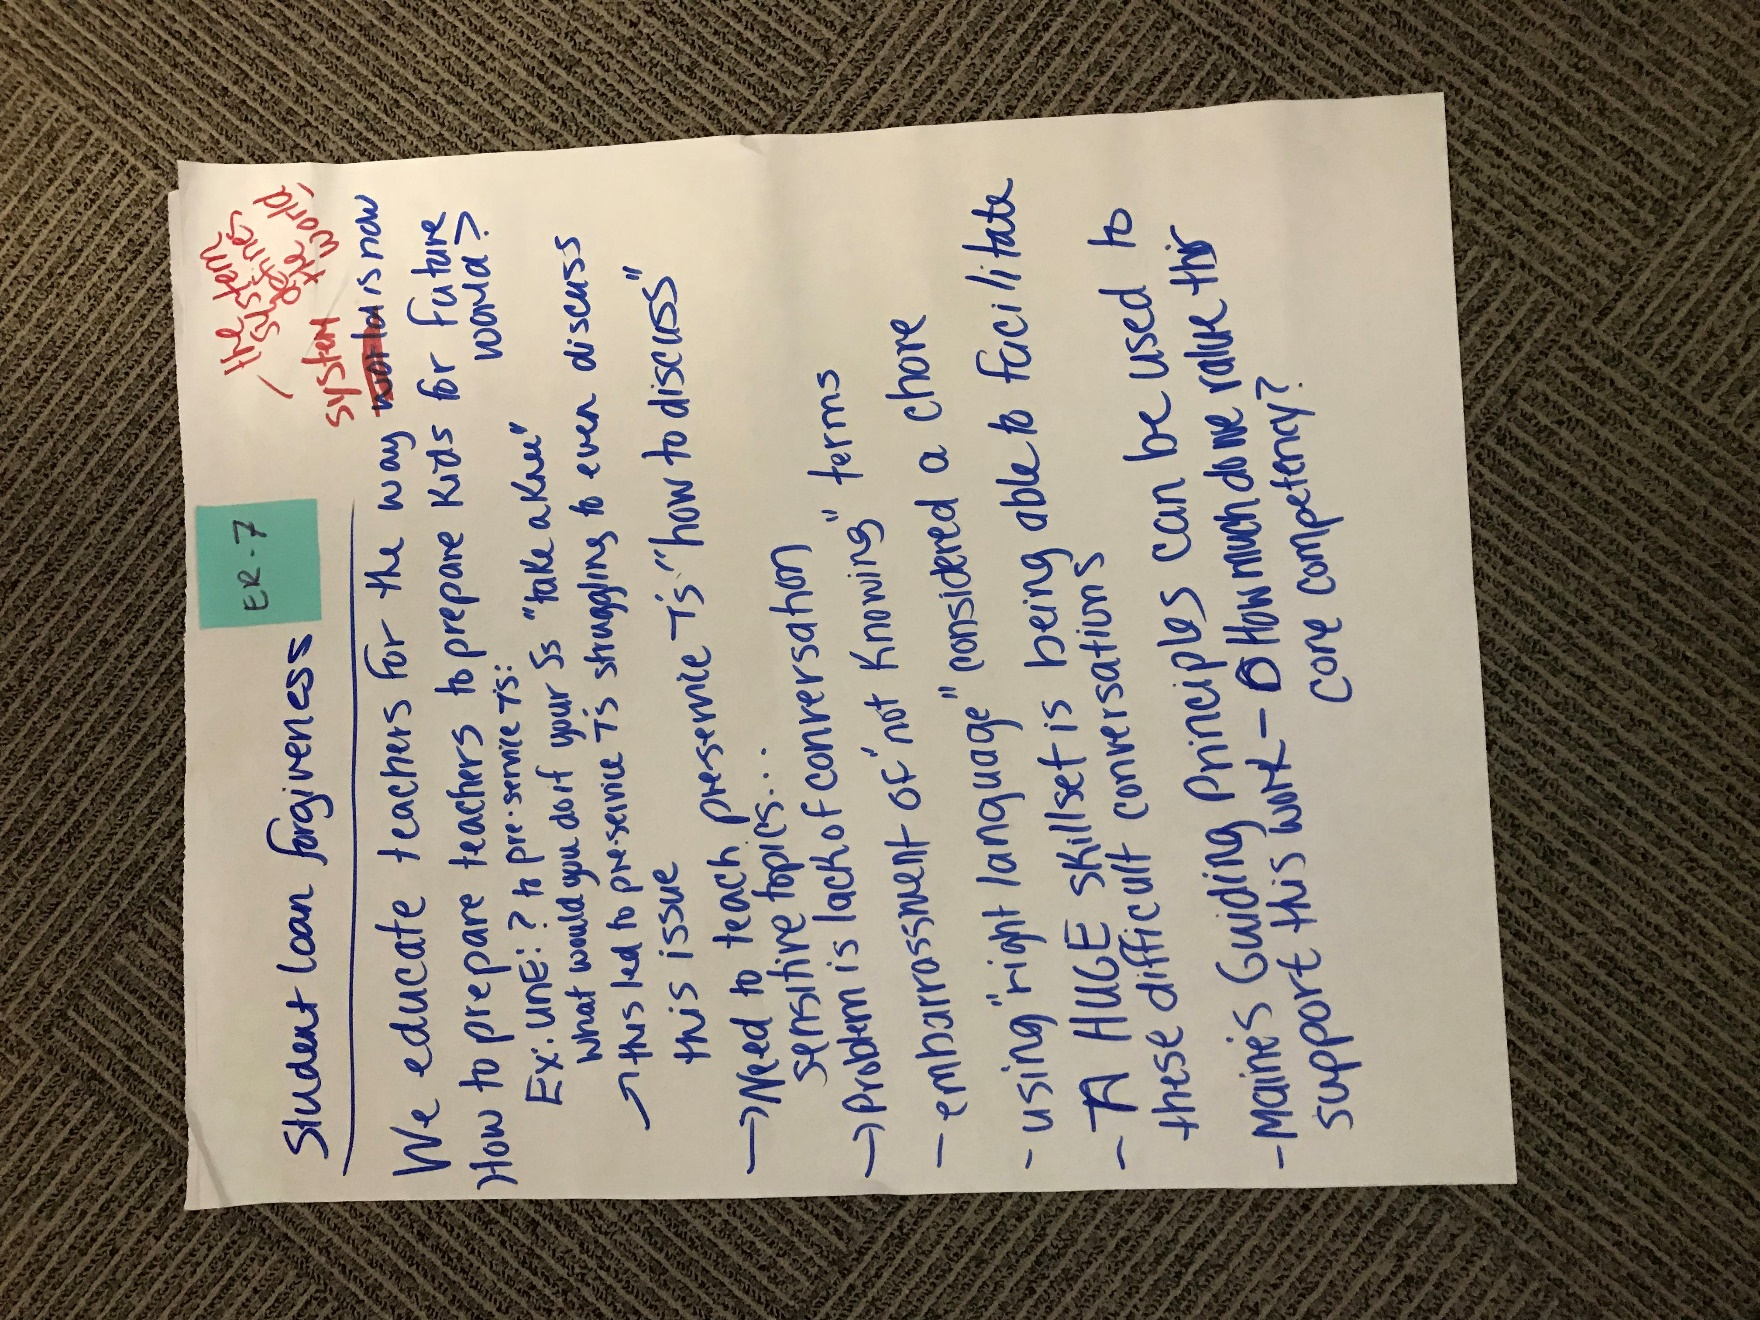 ER-7
Student loan forgiveness
the system
defines
the
world,
system
We educate teachers for the way world is now
How to prepare teachers to prepare kids for future
world?
Ex: UNE: ? to pre-service T's:
What would you do if your Ss "take a knee"
→ this led to pre-service T's struggling to even discuss
this issue
→ Need to teach pre-service T's "how to discuss"
sensitive topics...
→ Problem is lack of conversation
- embarrassment of "not knowing" terms
- using "right language" considered a chore
- A HUGE skillset is being able to facilitate
these difficult conversations
- Maine's Guiding Principles can be used to
support this work - How much do we value this
core competency?